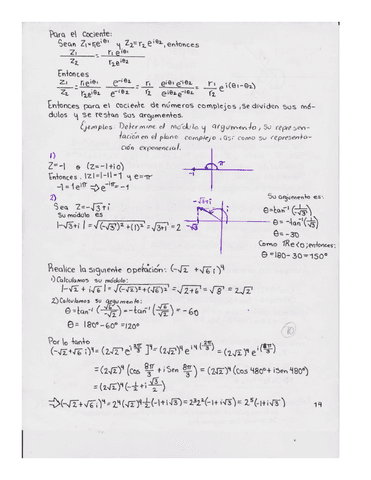 Para el cociente:
Sean Z₁=r₁e^iθ₁ y Z₂=r₂e^iθ₂, entonces
Z₁/Z₂ = r₁e^iθ₁/r₂e^iθ₂
Entonces
Z₁/Z₂ = r₁e^iθ₁/r₂e^iθ₂ e^-iθ₂/e^-iθ₂ = r₁/r₂ e^iθ₁e^-iθ₂/e^iθ₂e^-iθ₂ = r₁/r₂ e^i(θ₁-θ₂)
Entonces para el cociente de números complejos, se dividen sus mó-
dulos y se restan sus argumentos.
Ejemplos: Determine el módulo y argumento, su represen-
tación en el plano complejo, así como su represento-
ción exponencial.
1)
Z=-1 ó (Z=-1+i0)
Entonces. |Z|=|-1|=1 y θ=π
-1=1e^iπ ⇒ e^iπ=-1
-1 π
2)
Sea Z=-√3+i
Su módulo es
|-√3+i|=√(-√3)²+(1)²=√3+1=2
-√3+i i
-√3
Su argumento es:
θ=tan⁻¹(1/-√3)
θ=-tan⁻¹(1/√3)
θ=-30
Como IRe<0; entonces:
θ=180-30=150°
Realice la siguiente operación: (-√2 +√6 i)⁴
1) Calculamos su módulo:
|-√2 + i√6|=√(-√2)²+(√6)²=√2+6=√8=2√2
2) Calculamos su argumento:
θ=tan⁻¹(-√6/√2)=-tan⁻¹(√6/√2)=-60
θ= 180°-60°=120°
Por lo tanto
(-√2+√6 i)⁴=(2√2 e^i2π/3)⁴=(2√2)⁴e^i4(2π/3)=(2√2)⁴e^i(8π/3)
=(2√2)⁴(cos 8π/3 + i sen 8π/3)=(2√2)⁴(cos 480°+i sen 480°)
=(2√2)⁴(-1/2+i√3/2)
⇒(-√2+√6 i)⁴=2⁴(√2)⁴1/2(-1+i√3)=2³2²(-1+i√3)=2⁵(-1+i√3)
14